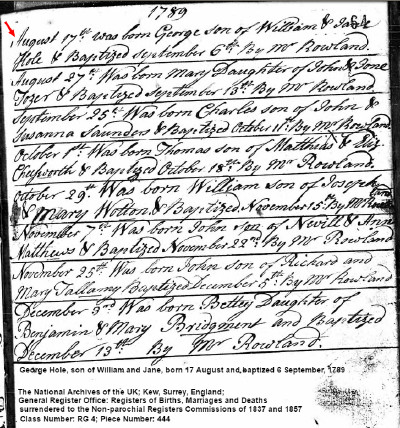 1789
August 17th was born George son of William & Jane
Hole & Baptized September 6th By Mr Rowland.
August 27th Was born Mary Daughter of John & Jone
Tozer & Baptized September 13th By Mr Rowland.
September 25th Was born Charles son of John &
Susanna Saunders & Baptized October 11th By Mr Rowland
October 1st Was born Thomas son of Matthias & Eliz
& Baptized October 18th By Mr Rowland.
October 29th Was born William son of Joseph
& Mary Wotton, & Baptized November 15th By Mr
November 7th Was born John son of Nevill & Ann
Matthews & Baptized November 22d By Mr Rowland
November 25th Was born John son of Richard and
Mary Tallamy Baptized December 5th By Mr Rowland
December 3rd Was born Betley Daughter of
Benjamin & Mary Bridgment and Baptized
December 13th By Mr Rowland.
George Hole, son of William and Jane, born 17 August and baptized 6 September, 1789
The National Archives of the UK; Kew, Surrey, England;
General Register Office: Registers of Births, Marriages and Deaths
surrendered to the Non-parochial Registers Commissions of 1837 and 1857
Class Number: RG 4; Piece Number: 444